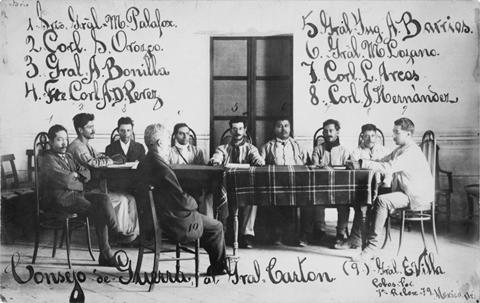 1. Srio. Gral. M. Palafox.
2. Corl. D. Orozco.
3. Gral. A. Bonilla
4. Tte Corl. A. D. Perez
5. Gral. Ing. A. Barrios.
6. Gral. M. Lozano.
7. Corl. L. Arcos
8. Corl. J. Hernández
Consejo de Guerra, al Gral. Carton. (9.) Gral. E. Villa
10
Mexico,